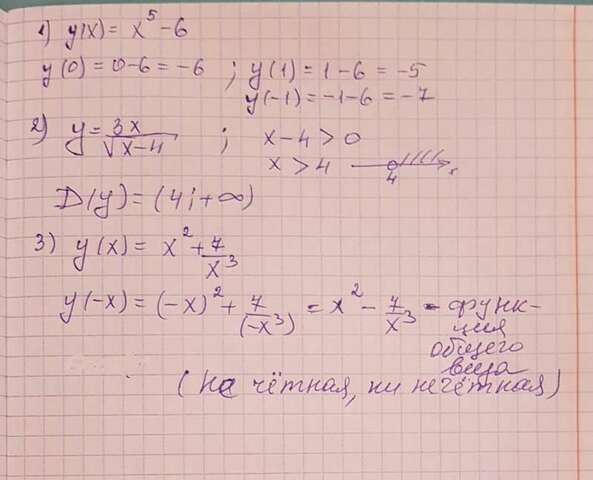 1) y(x) = x⁵ - 6
y(0) = 0-6 = -6 ; y(1) = 1-6 = -5
y(-1) = -1-6 = -7
2) y = 3x/√(x-4) ; x-4 > 0
x > 4
4 x
D(y) = (4; +∞)
3) y(x) = x² + 7/x³
y(-x) = (-x)² + 7/(-x³) = x² - 7/x³ - функ-
ция
общего
вида
(не чётная, ни нечётная)